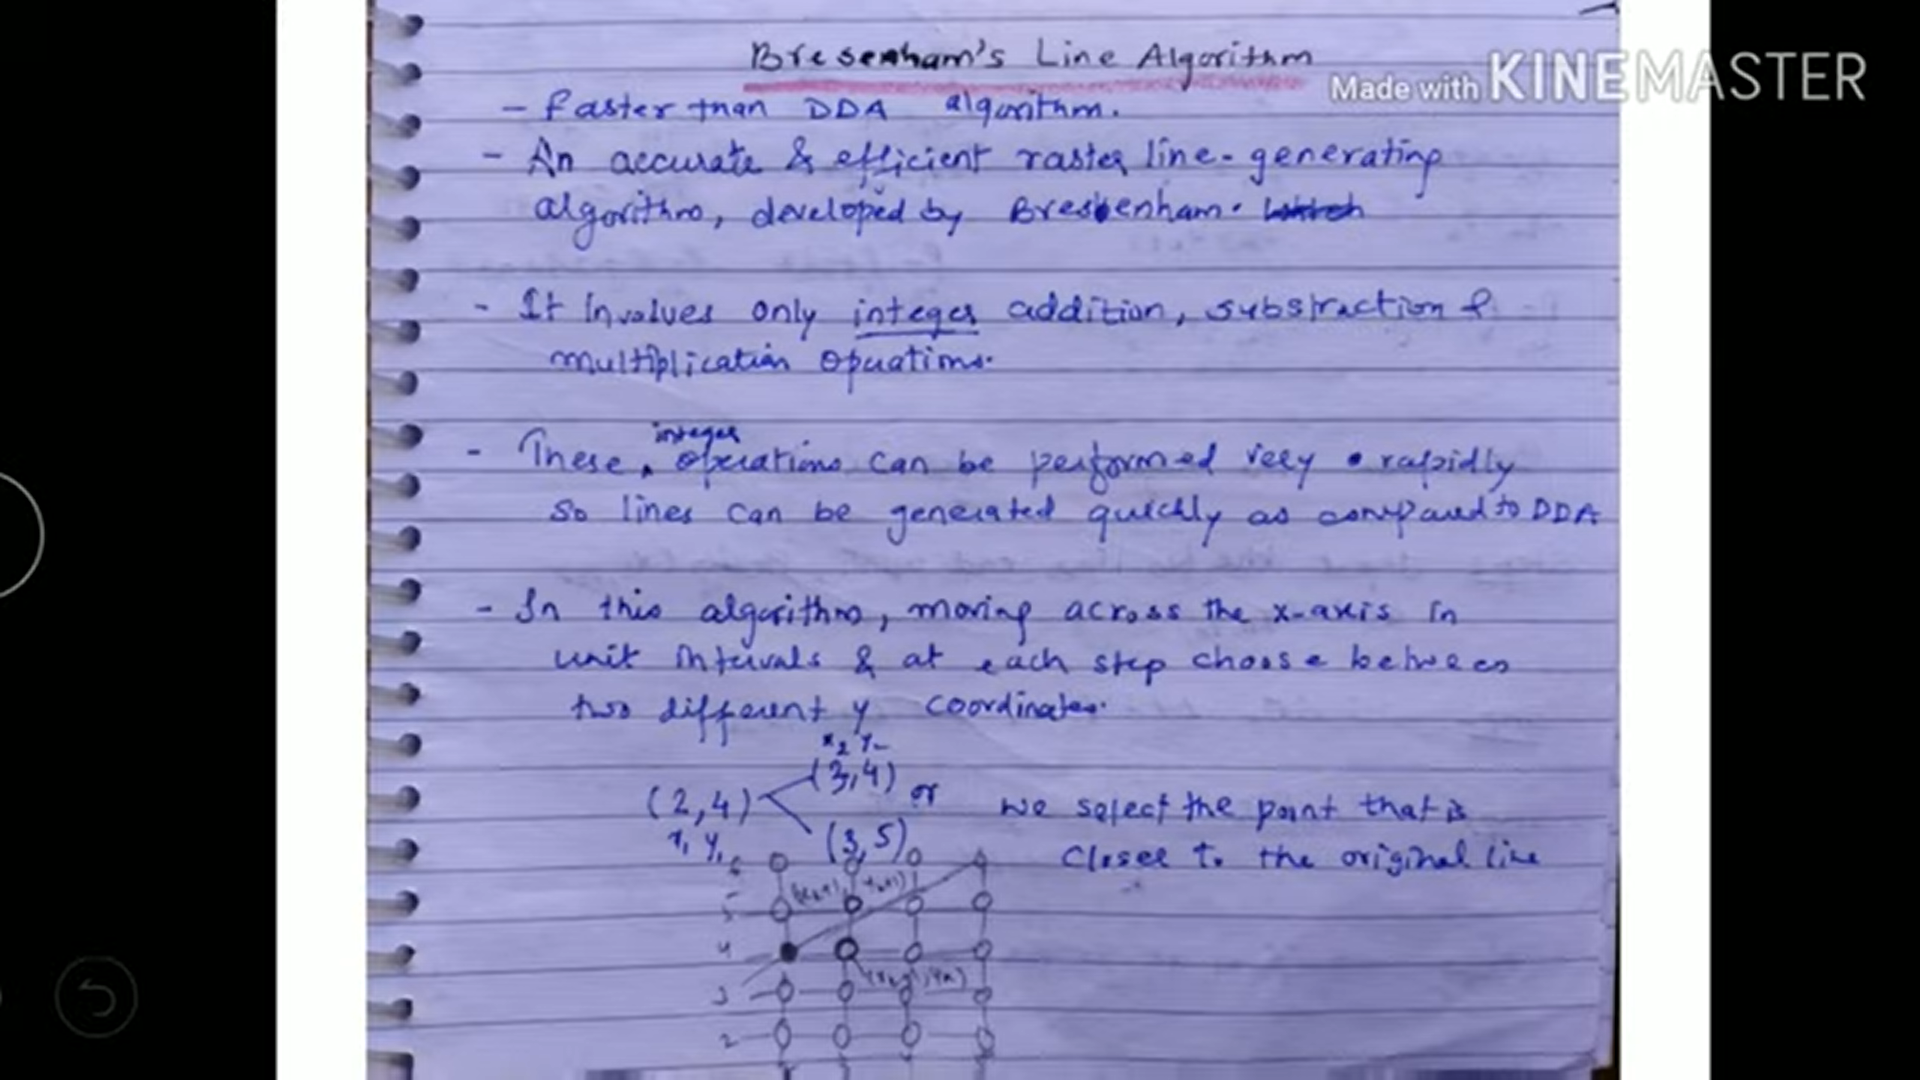 Bresenham's Line Algorithm
Made with KINEMASTER
- faster than DDA algorithm.
- An accurate & efficient raster line-generating
algorithm, developed by Bresenham.
- It Involves only integer addition, substraction &
multiplication operations.
integer
- These operations can be performed very rapidly
so lines can be generated quickly as compared to DDA
- In this algorithm, moving across the x-axis in
unit intervals & at each step choose between
two different y coordinates.
x2 y2
(2,4) (3,4) or
x1 y1 (3,5)
we select the point that is
closer to the original line
6
5 (xk+1, yk+1)
4
3 (xk+1, yk)
2